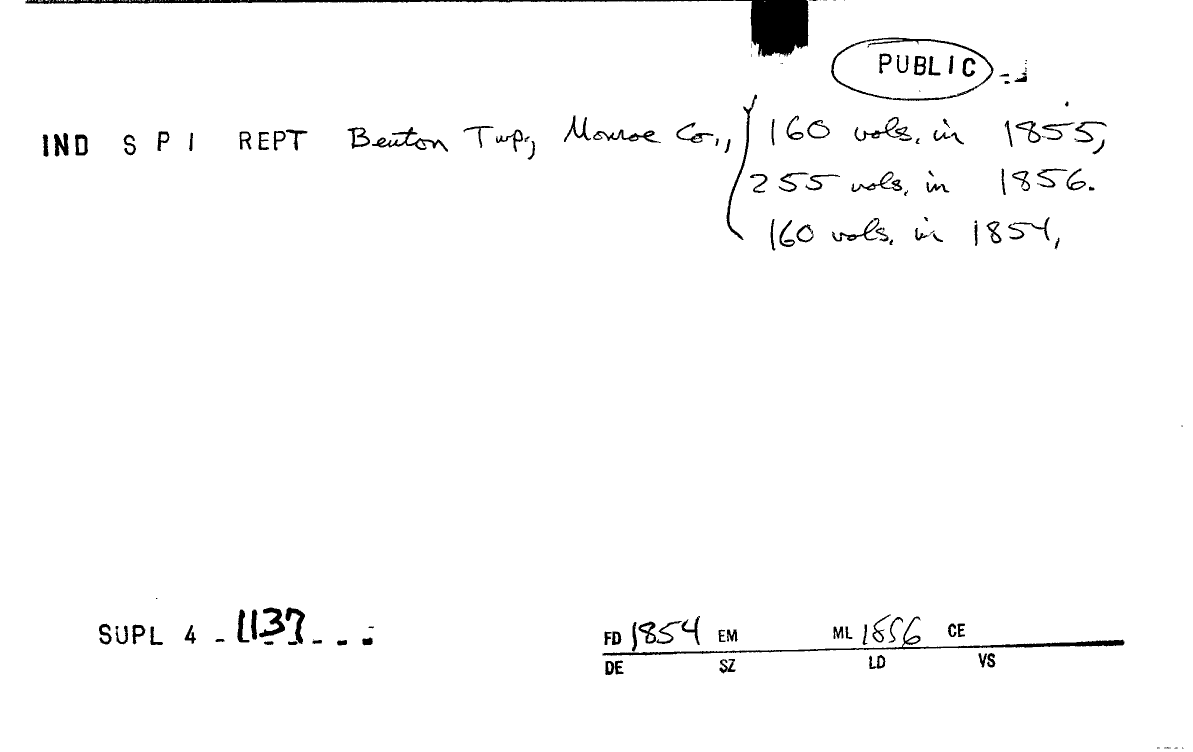 PUBLIC
IND S P I REPT Benton Twp, Monroe Co., 160 vols. in 1855,
255 vols. in 1856.
160 vols. in 1854,
SUPL 4 - 1137 - - -
FD 1854 EM ML 1856 CE
DE SZ LD VS